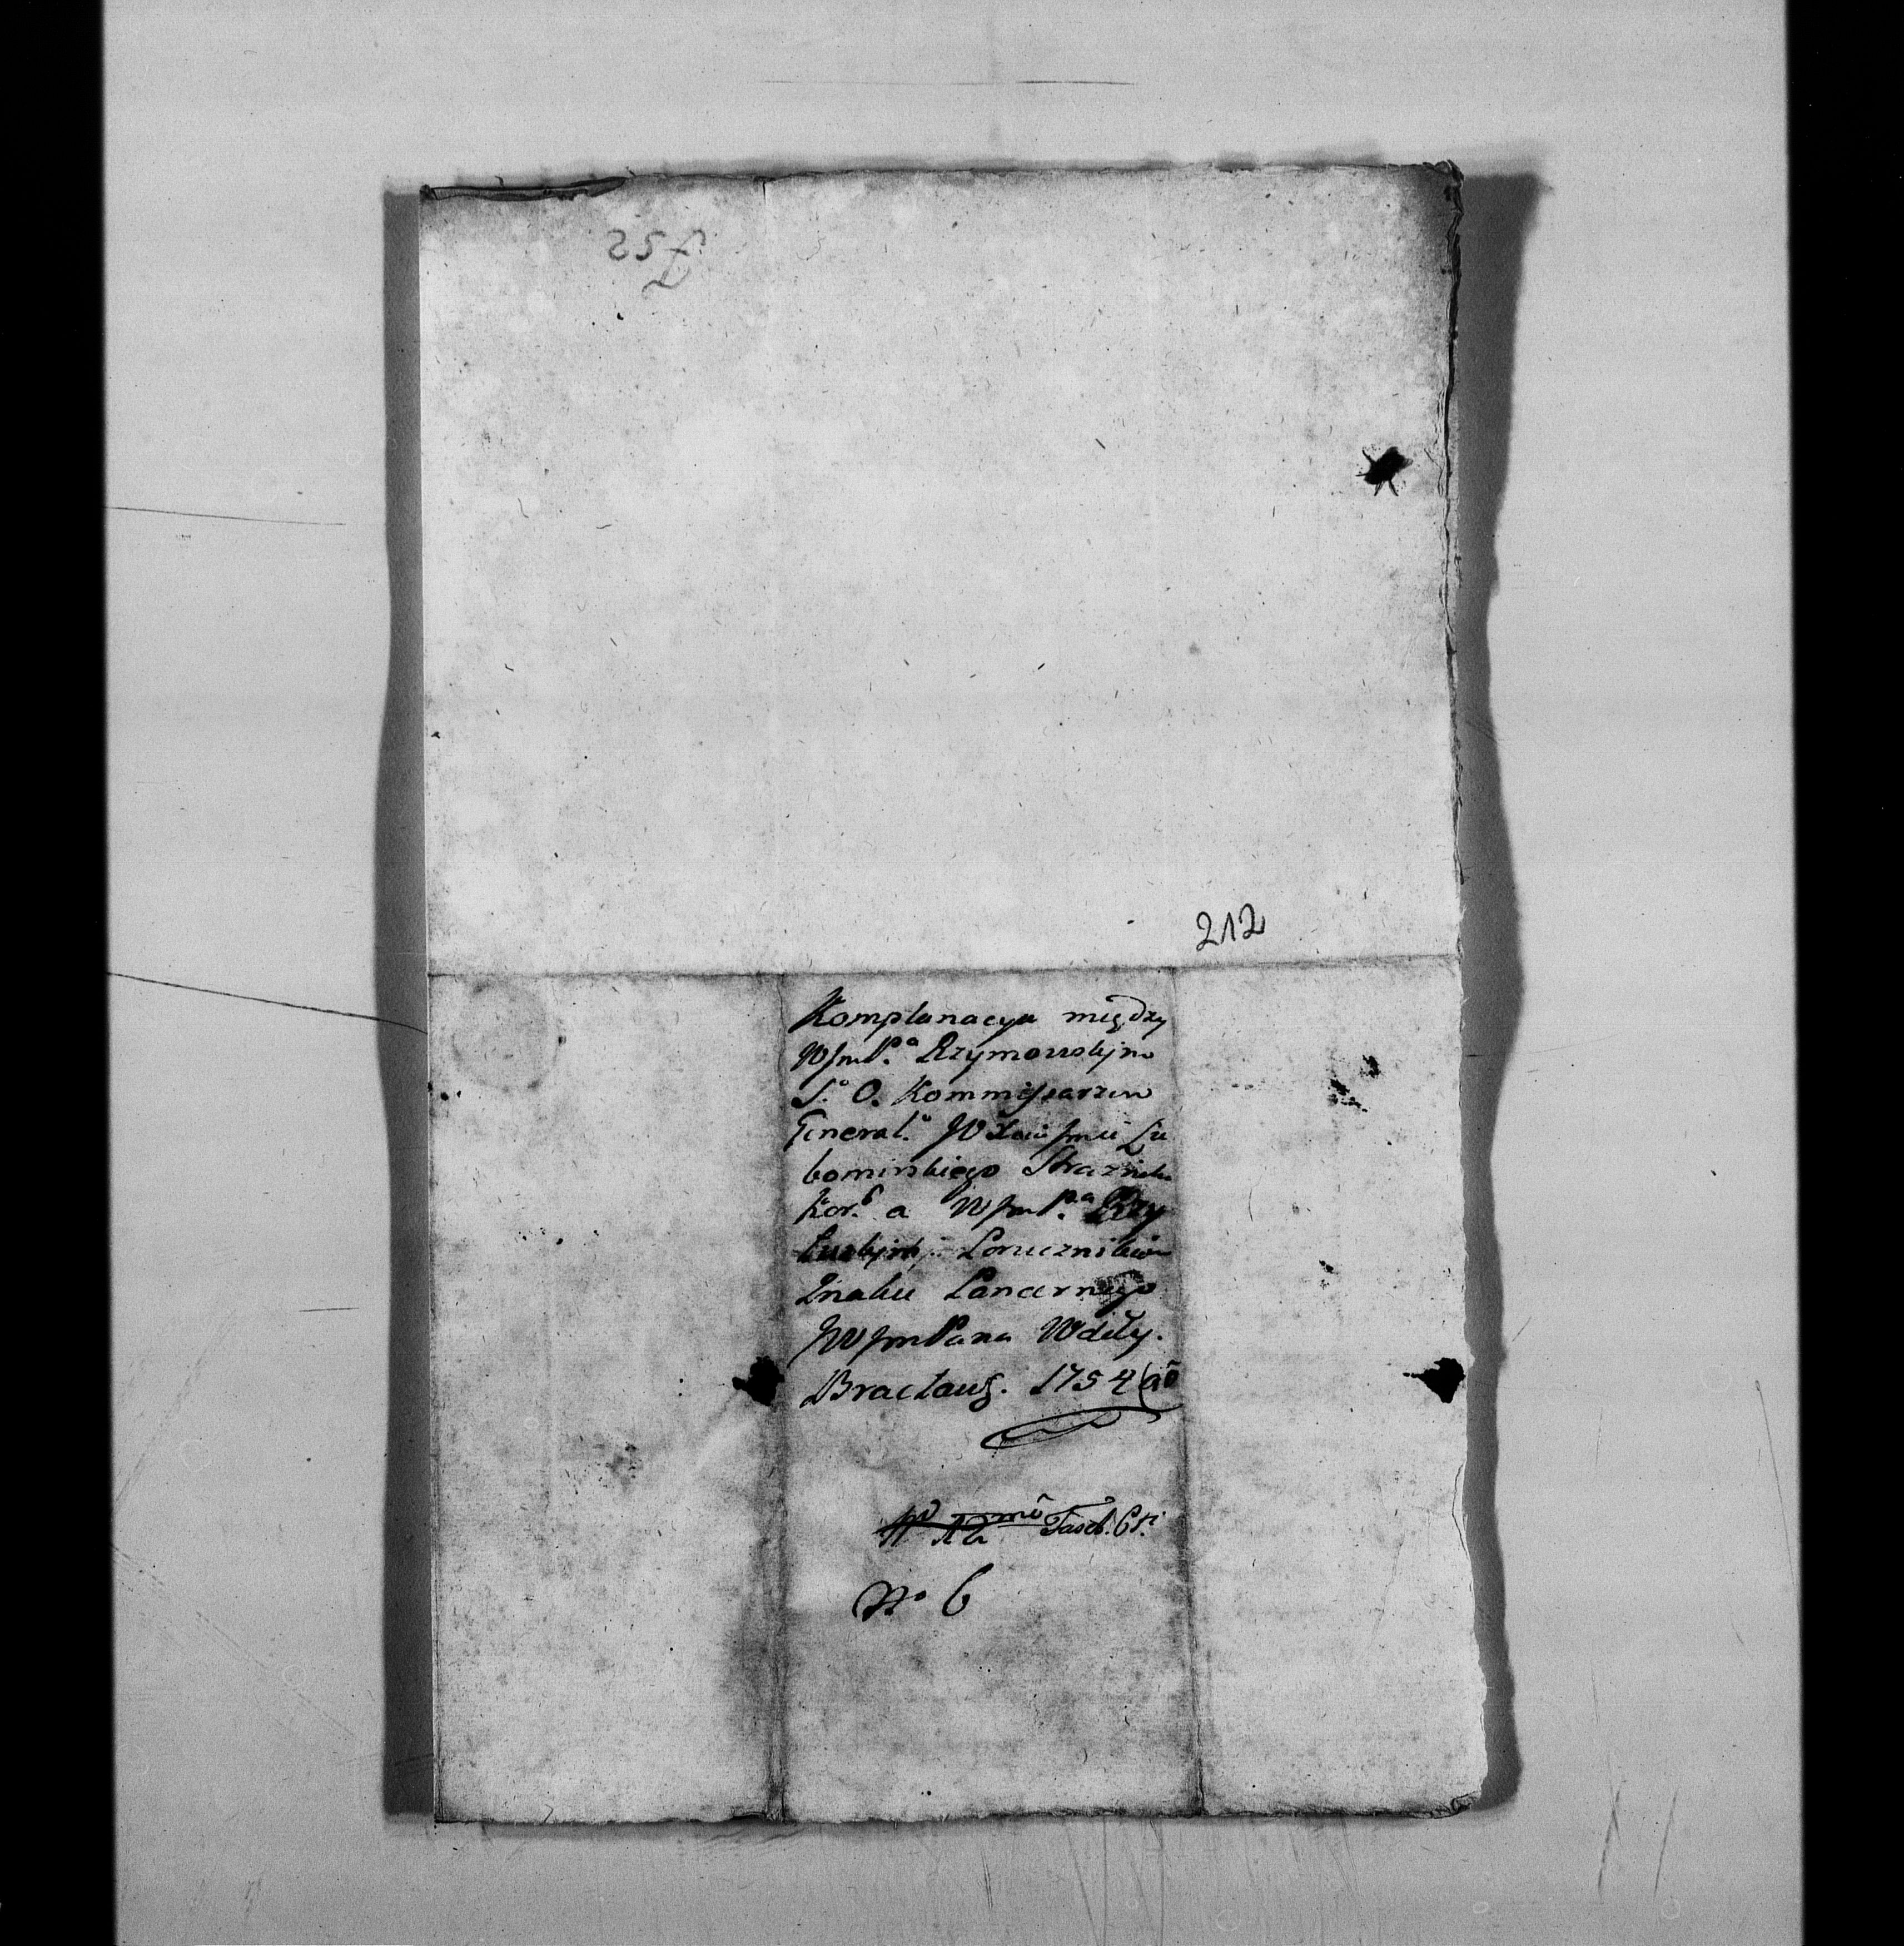 212
Komplanacya między
WJmP.ª Rzymowskjm
S. O. Kommissarzem
General.º JW Jmci Lu
bomirskiego Strażnika
Kor. a WJmP.ª Rzy
Porucznikiem
Znaku Pancernego
JWJmPana Wdży.
Bracławs. 1754 (aō
Fasc. 6ti
No 6